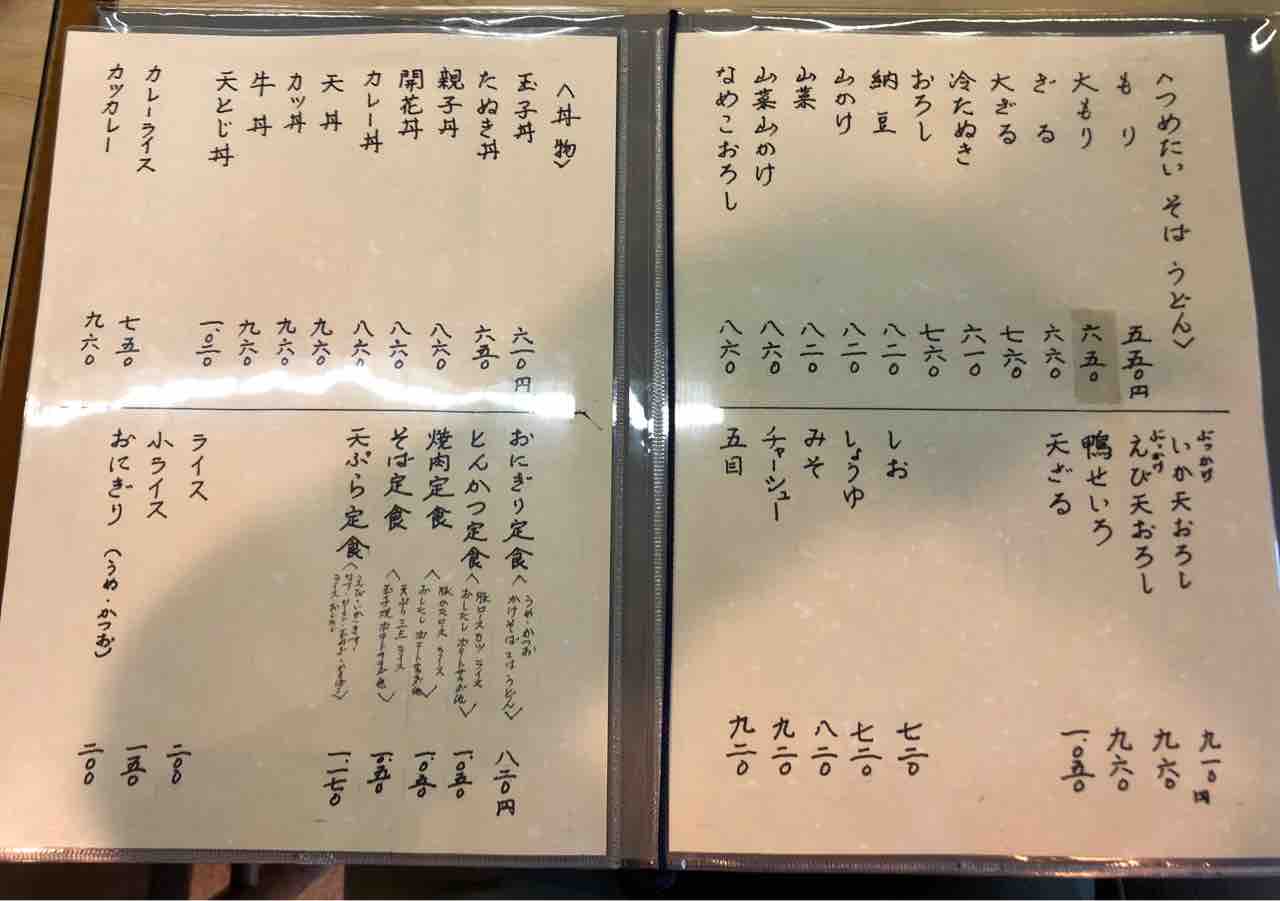 〈つめたい そば うどん〉
もり 五五〇円
大もり 六五〇
ざる 六六〇
大ざる 七六〇
冷たぬき 六一〇
おろし 七六〇
納豆 八二〇
山かけ 八二〇
山菜 八二〇
山菜山かけ 八六〇
なめこおろし 八六〇
ぶっかけ
いか天おろし 九一〇円
ぶっかけ
えび天おろし 九六〇
鴨せいろ 九六〇
天ざる 一.〇五〇
しお 七二〇
しょうゆ 七二〇
みそ 八二〇
チャーシュー 九二〇
五目 九二〇
〈丼物〉
玉子丼 六一〇円
たぬき丼 六五〇
親子丼 八六〇
開花丼 八六〇
カレー丼 八六〇
天丼 九六〇
カツ丼 九六〇
牛丼 九六〇
天とじ丼
カレーライス 七五〇
カツカレー 九六〇
おにぎり定食 八二〇円
〈うめ・かつお
かけそば 又は うどん〉
とんかつ定食 一.〇五〇
〈豚ロースカツ ライス
おしたし ポテトサラダ他〉
焼肉定食 一.〇五〇
〈豚カタロース ライス
おしたし ポテトサラダ他〉
そば定食 一.〇五〇
〈天ぷら三点 ライス
玉子焼 ポテトサラダ他〉
天ぷら定食 一.一七〇
ライス 二〇〇
小ライス 一五〇
おにぎり(うめ・かつお) 二〇〇